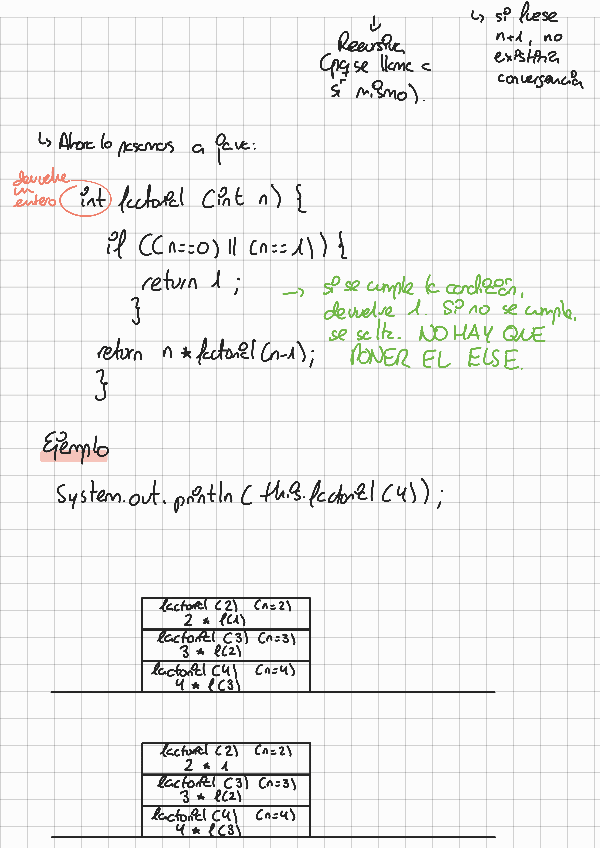 ↓
Recursiva
(pq se llama a
sí mismo).
↳ si fuese
n+1, no
existiría
convergencia
↳ Ahora lo pasamos a java:
devuelve
un
entero
int factorial (int n) {
if ((n==0) || (n==1)) {
return 1 ;
}
→ si se cumple la condición,
devuelve 1. Si no se cumple,
se salta. NO HAY QUE
PONER EL ELSE.
return n * factorial (n-1);
}
Ejemplo
System.out.println ( this.factorial (4));
factorial (2) (n=2)
2 * f(1)
factorial (3) (n=3)
3 * f(2)
factorial (4) (n=4)
4 * f(3)
factorial (2) (n=2)
2 * 1
factorial (3) (n=3)
3 * f(2)
factorial (4) (n=4)
4 * f(3)